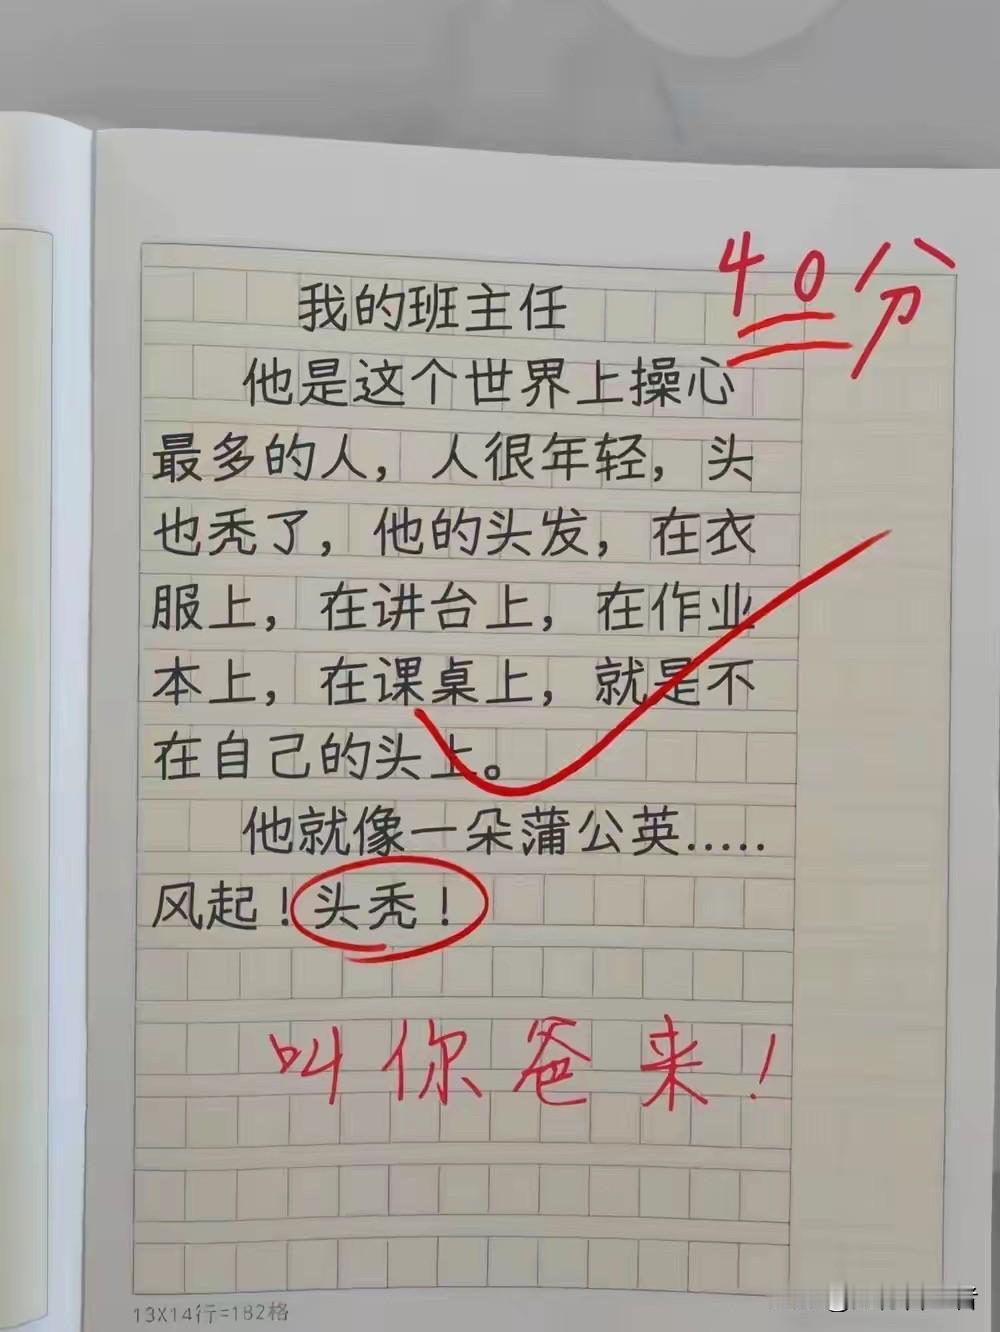 40分
我的班主任
他是这个世界上操心
最多的人，人很年轻，头
也秃了，他的头发，在衣
服上，在讲台上，在作业
本上，在课桌上，就是不
在自己的头上。
他就像一朵蒲公英.....
风起！头秃！
叫你爸来！
13X14行=182格